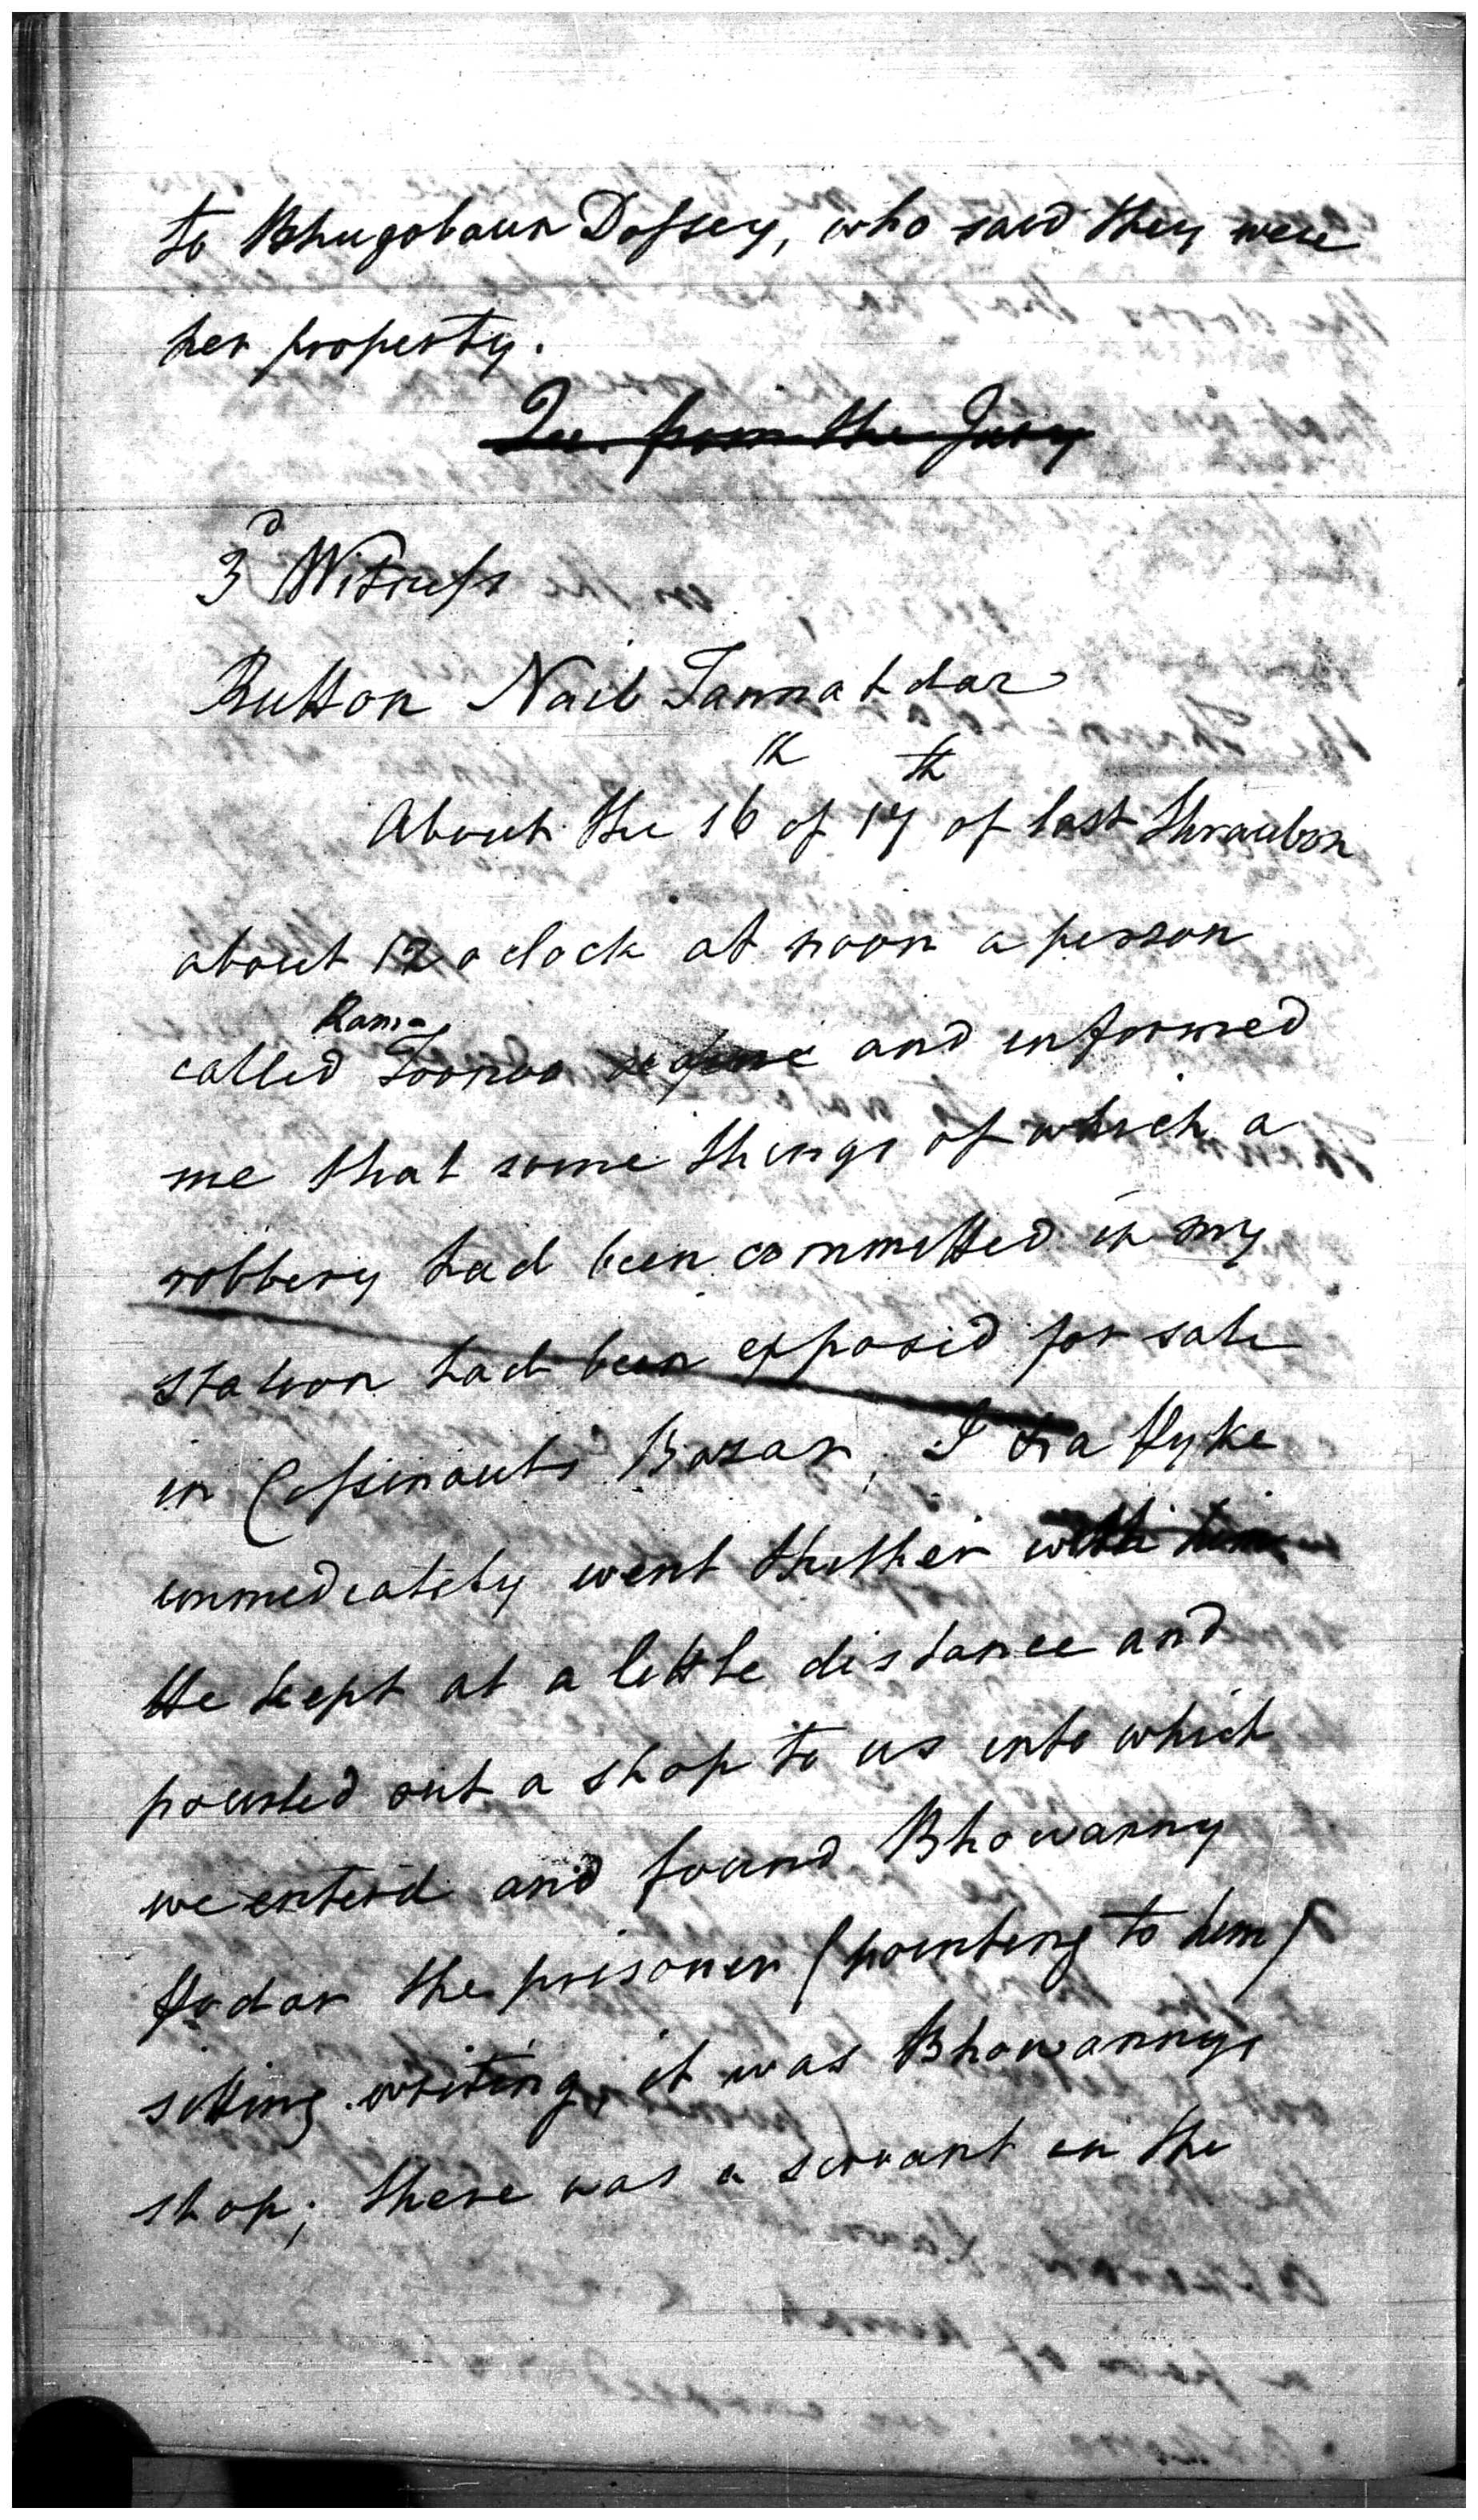 to Bhugobaun Dossey, who said they were
her property.
Que. from the Jury
3d Witness
Rutton Naib Tannahdar
About the 16th of 17th of last Shraubon
about 12 o clock at noon a person
called Ram- and informed
me that some things of which a
robbery had been committed in my
station had been exposed for sale
in Cossinauts Bazar, I & a Pyke
immediately went thither with him
He kept at a little distance and
pointed out a shop to us into which
we enterd and found Bhowanny
Podar the prisoner (pointing to him)
sitting writing, it was Bhowannys
shop; there was a servant in the